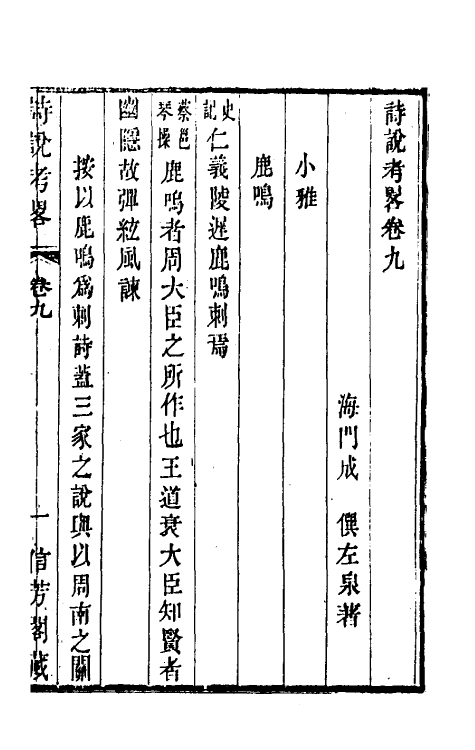 詩說考畧卷九
海門成　僎左泉著
小雅
鹿鳴
史記仁義陵遲鹿鳴刺焉
蔡邕琴操鹿鳴者周大臣之所作也王道衰大臣知賢者
幽隱故彈絃風諫
按以鹿鳴爲刺詩蓋三家之說與以周南之關
詩說考畧
卷九
一
信芳閣藏